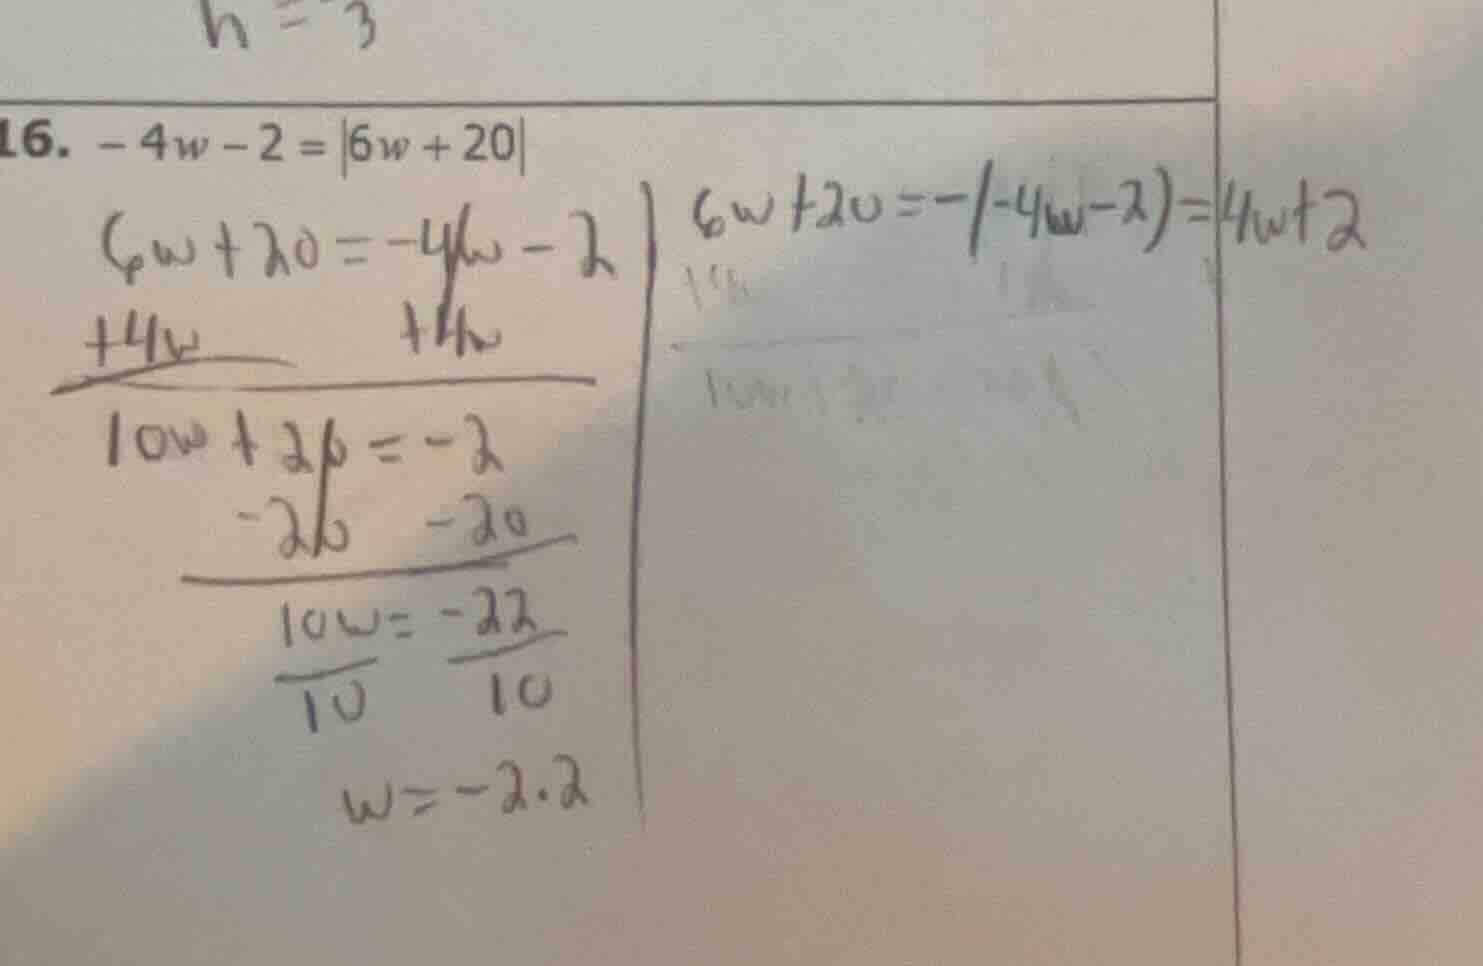 h = 3
16. - 4w - 2 = |6w + 20|
6w + 20 = -4w - 2
+4w +4w
10w + 20 = -2
-20 -20
10w = -22
10 10
w = -2.2
6w + 20 = -(-4w - 2) = 4w + 2